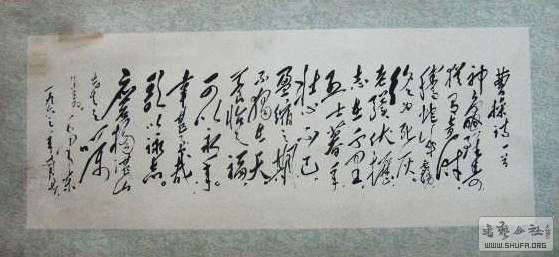 曹操诗一首
神龟雖寿
猶有竟時
騰蛇乘霧
终为灰
老骥伏櫪
志在千里
烈士暮年
壮心不已
盈缩之期
不独在天
養怡之福
可以永年
幸甚至哉
歌以咏志
山
之嘱
毛泽东
一九六年
书艺公社
WWW.SHUFA.ORG